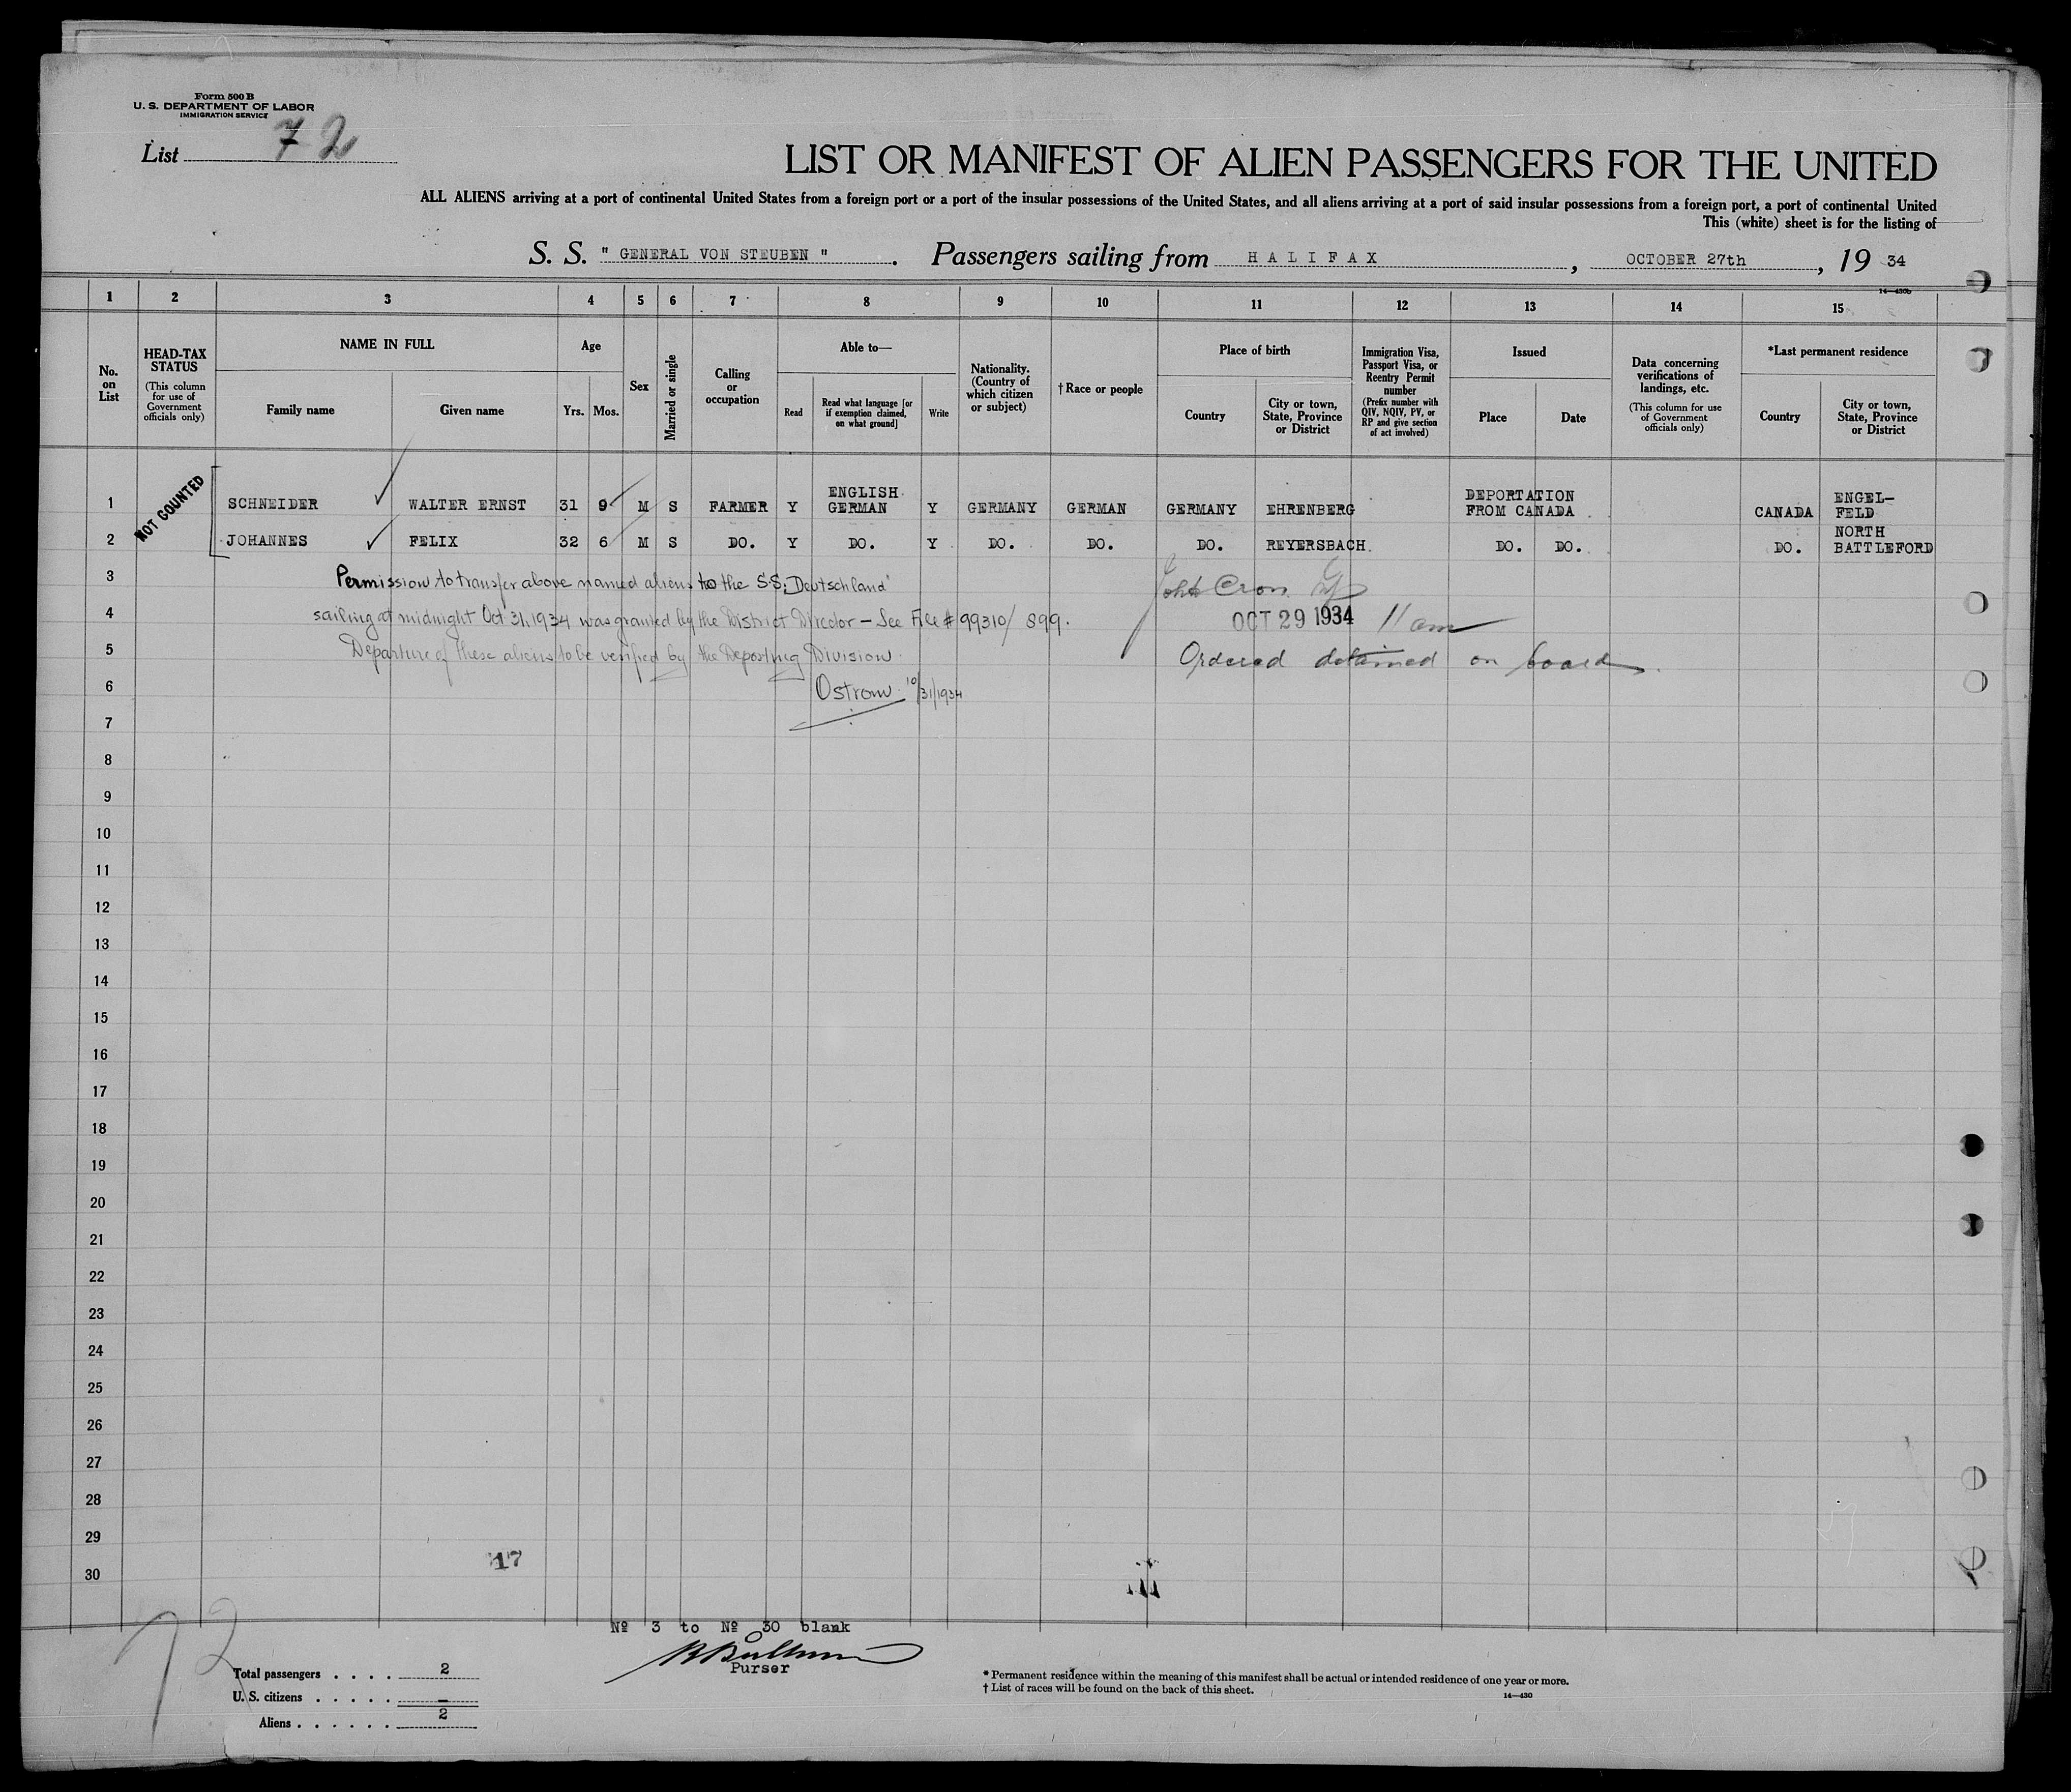 Form 500 B
U. S. DEPARTMENT OF LABOR
IMMIGRATION SERVICE
List 72
LIST OR MANIFEST OF ALIEN PASSENGERS FOR THE UNITED
ALL ALIENS arriving at a port of continental United States from a foreign port or a port of the insular possessions of the United States, and all aliens arriving at a port of said insular possessions from a foreign port, a port of continental United
This (white) sheet is for the listing of
S. S. " GENERAL VON STEUBEN " . Passengers sailing from HALIFAX , OCTOBER 27th , 19 34
14—430b
1 2 3 4 5 6 7 8 9 10 11 12 13 14 15
No. on List
HEAD-TAX STATUS (This column for use of Government officials only)
NAME IN FULL
Family name
Given name
Age
Yrs.
Mos.
Sex
Married or single
Calling or occupation
Able to—
Read
Read what language [or if exemption claimed, on what ground]
Write
Nationality. (Country of which citizen or subject)
† Race or people
Place of birth
Country
City or town, State, Province or District
Immigration Visa, Passport Visa, or Reentry Permit number (Prefix number with QIV, NQIV, PV, or RP and give section of act involved)
Issued
Place
Date
Data concerning verifications of landings, etc. (This column for use of Government officials only)
*Last permanent residence
Country
City or town, State, Province or District
NOT COUNTED
1 SCHNEIDER WALTER ERNST 31 9 M S FARMER Y ENGLISH GERMAN Y GERMANY GERMAN GERMANY EHRENBERG DEPORTATION FROM CANADA CANADA ENGEL-FELD
2 JOHANNES FELIX 32 6 M S DO. Y DO. Y DO. DO. DO. REYERSBACH DO. DO. DO. NORTH BATTLEFORD
3 Permission to transfer above named aliens to the S.S. Deutschland"
John Cron
4 sailing at midnight Oct 31, 1934 was granted by the District Director - See File # 99310/899.
OCT 29 1934 11 am
5 Departure of these aliens to be verified by the Deporting Division.
Ordered detained on board.
6 Ostrow 10/31/1934
7
8
9
10
11
12
13
14
15
16
17
18
19
20
21
22
23
24
25
26
27
28
29
30
17
Nº 3 to Nº 30 blank
Purser
72
Total passengers . . . . 2
U. S. citizens . . . . . —
Aliens . . . . . . 2
* Permanent residence within the meaning of this manifest shall be actual or intended residence of one year or more.
† List of races will be found on the back of this sheet.
14—430